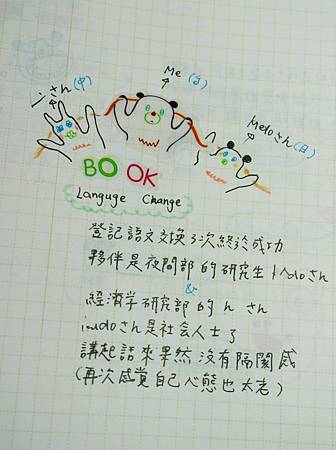 さん(中)
Me (台)
Metoさん(日)
BOOK
Languge Change
登記語文交換了次終於成功
夥伴是夜間部的研究生 さん
&
経済学研究部的 n さん
さん是社会人士了
講起話來果然沒有隔閡感
(再次感覺自己心態也太老)